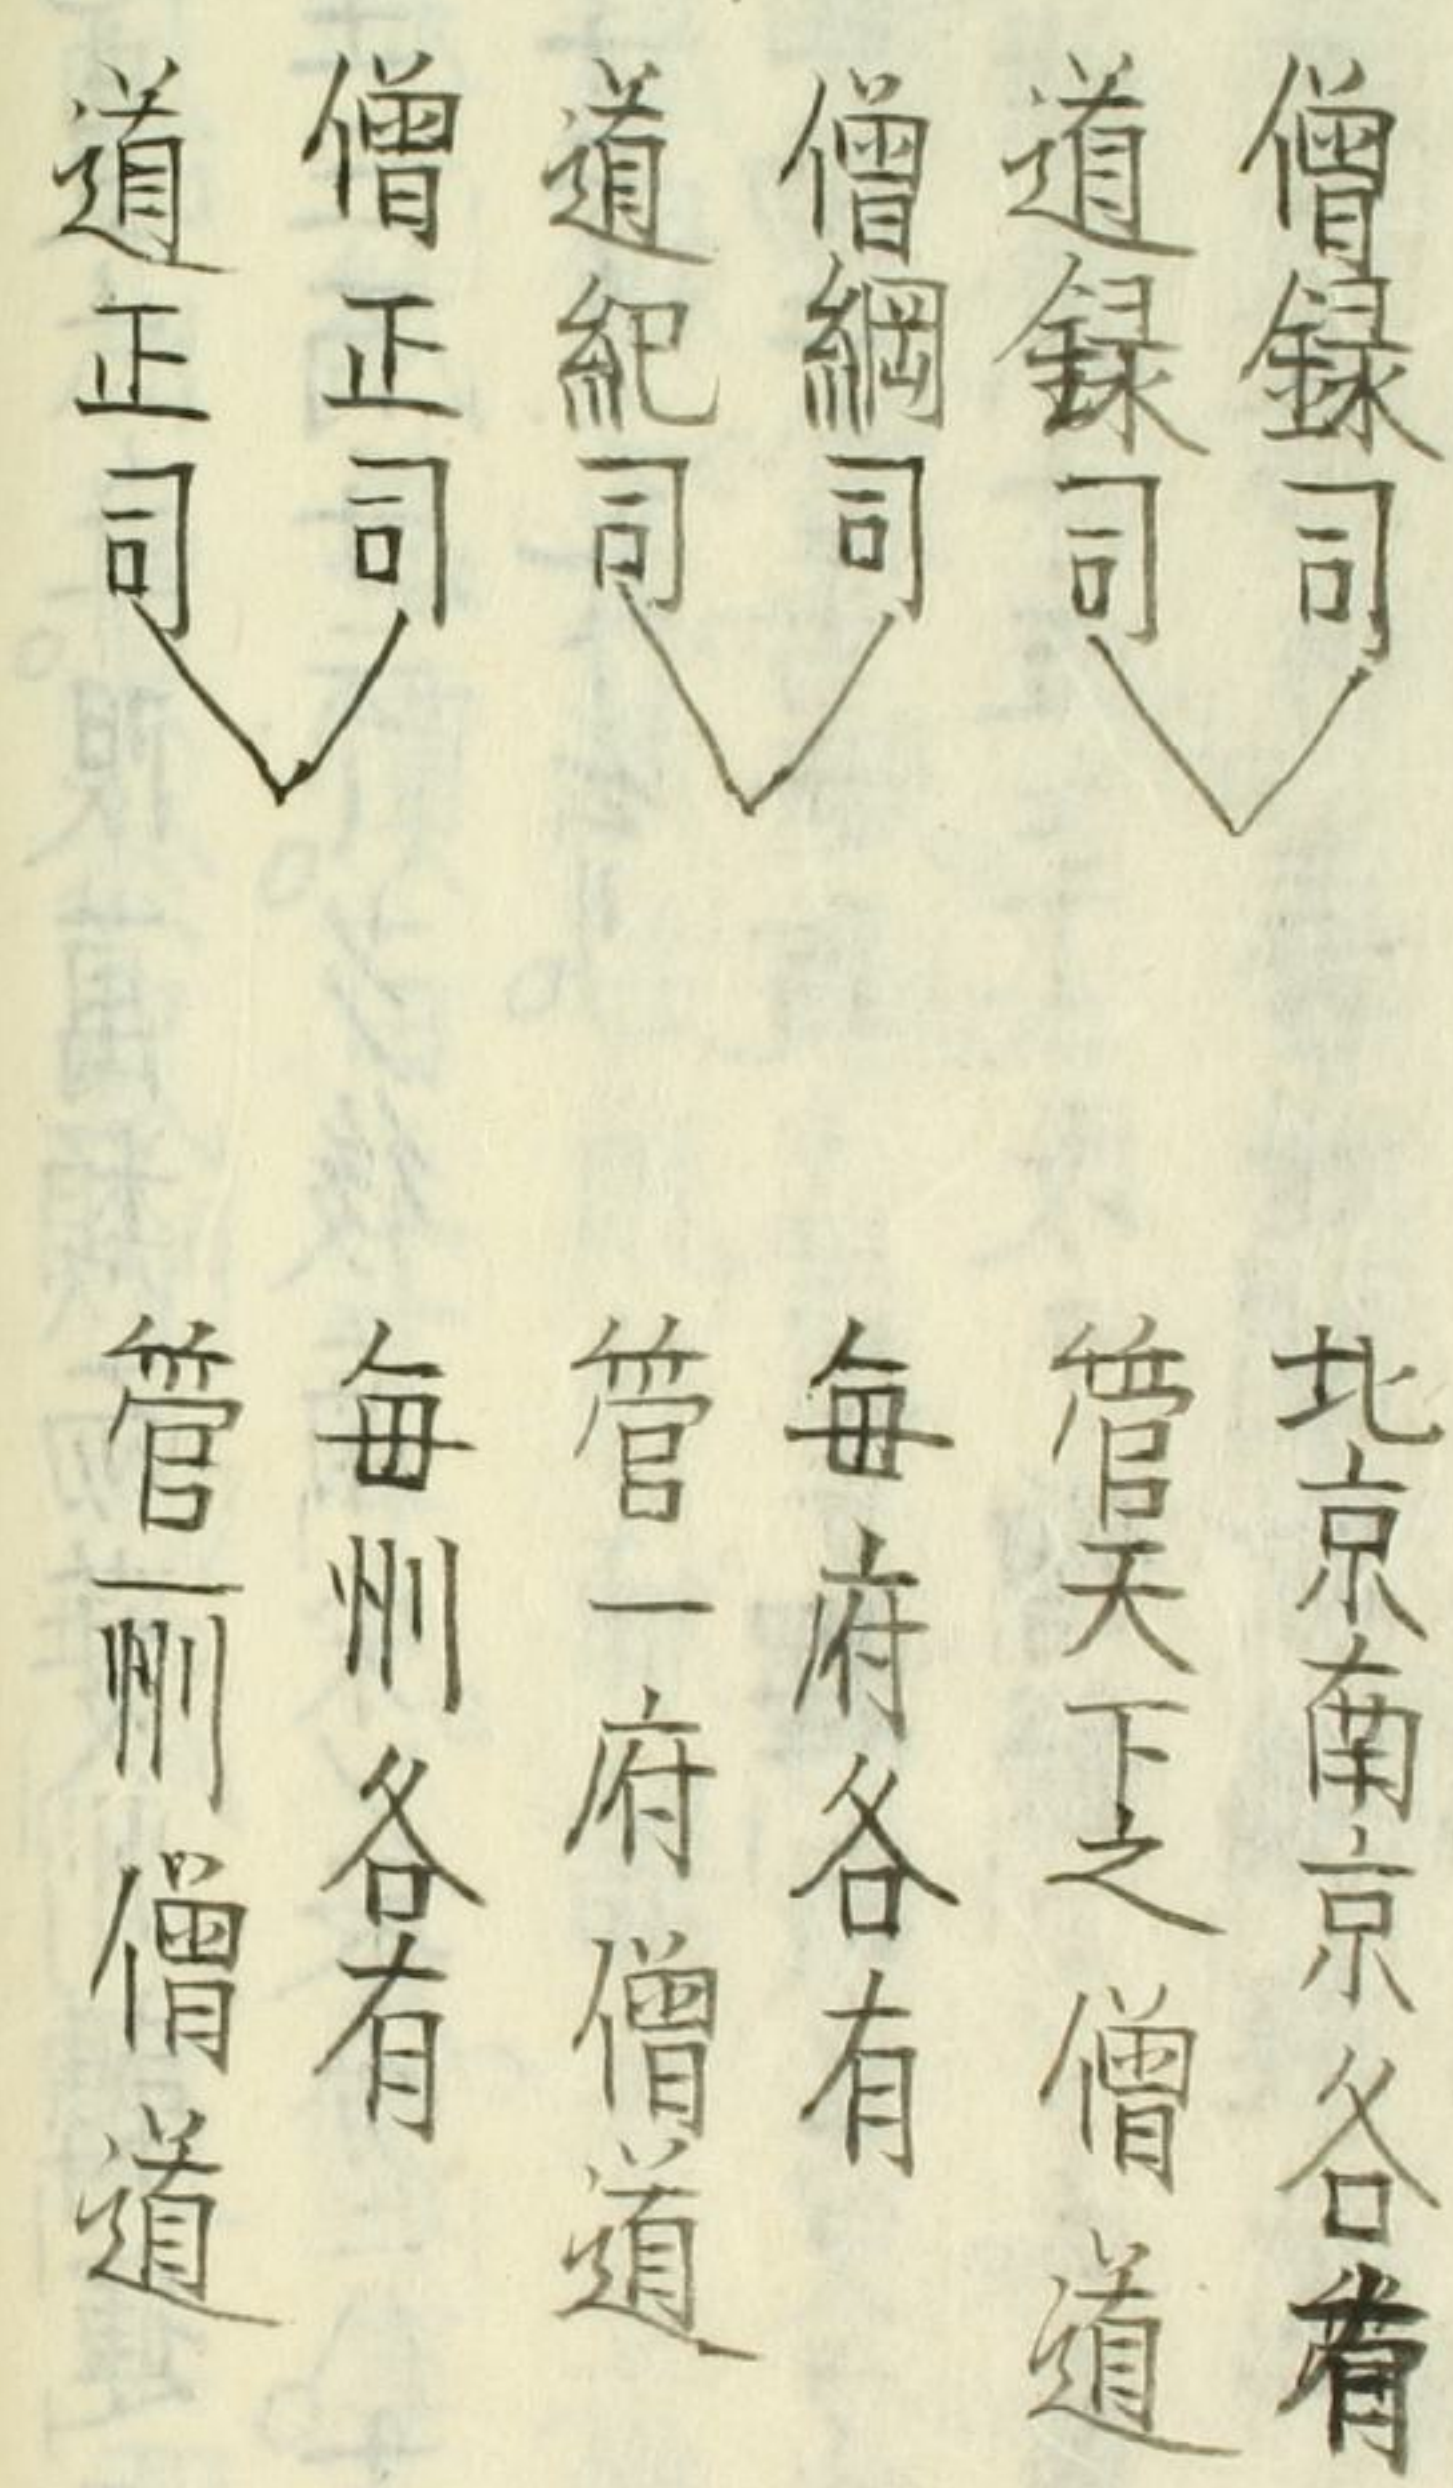 僧録司
道録司
北京南京各有
管天下之僧道
僧綱司
道紀司
每府各有
管一府僧道
僧正司
道正司
每州各有
管一州僧道